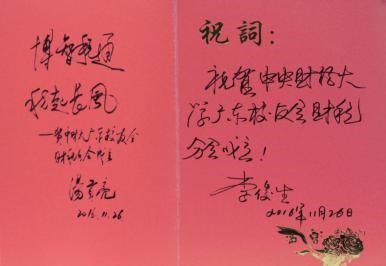 博智聚通
税起长风
—贺中财大广东校友会
财税分会成立
汤贡亮
2016.11.26
祝詞：
祝贺中央财经大
学广东校友会财税
分会成立！
李俊生
2016年11月26日